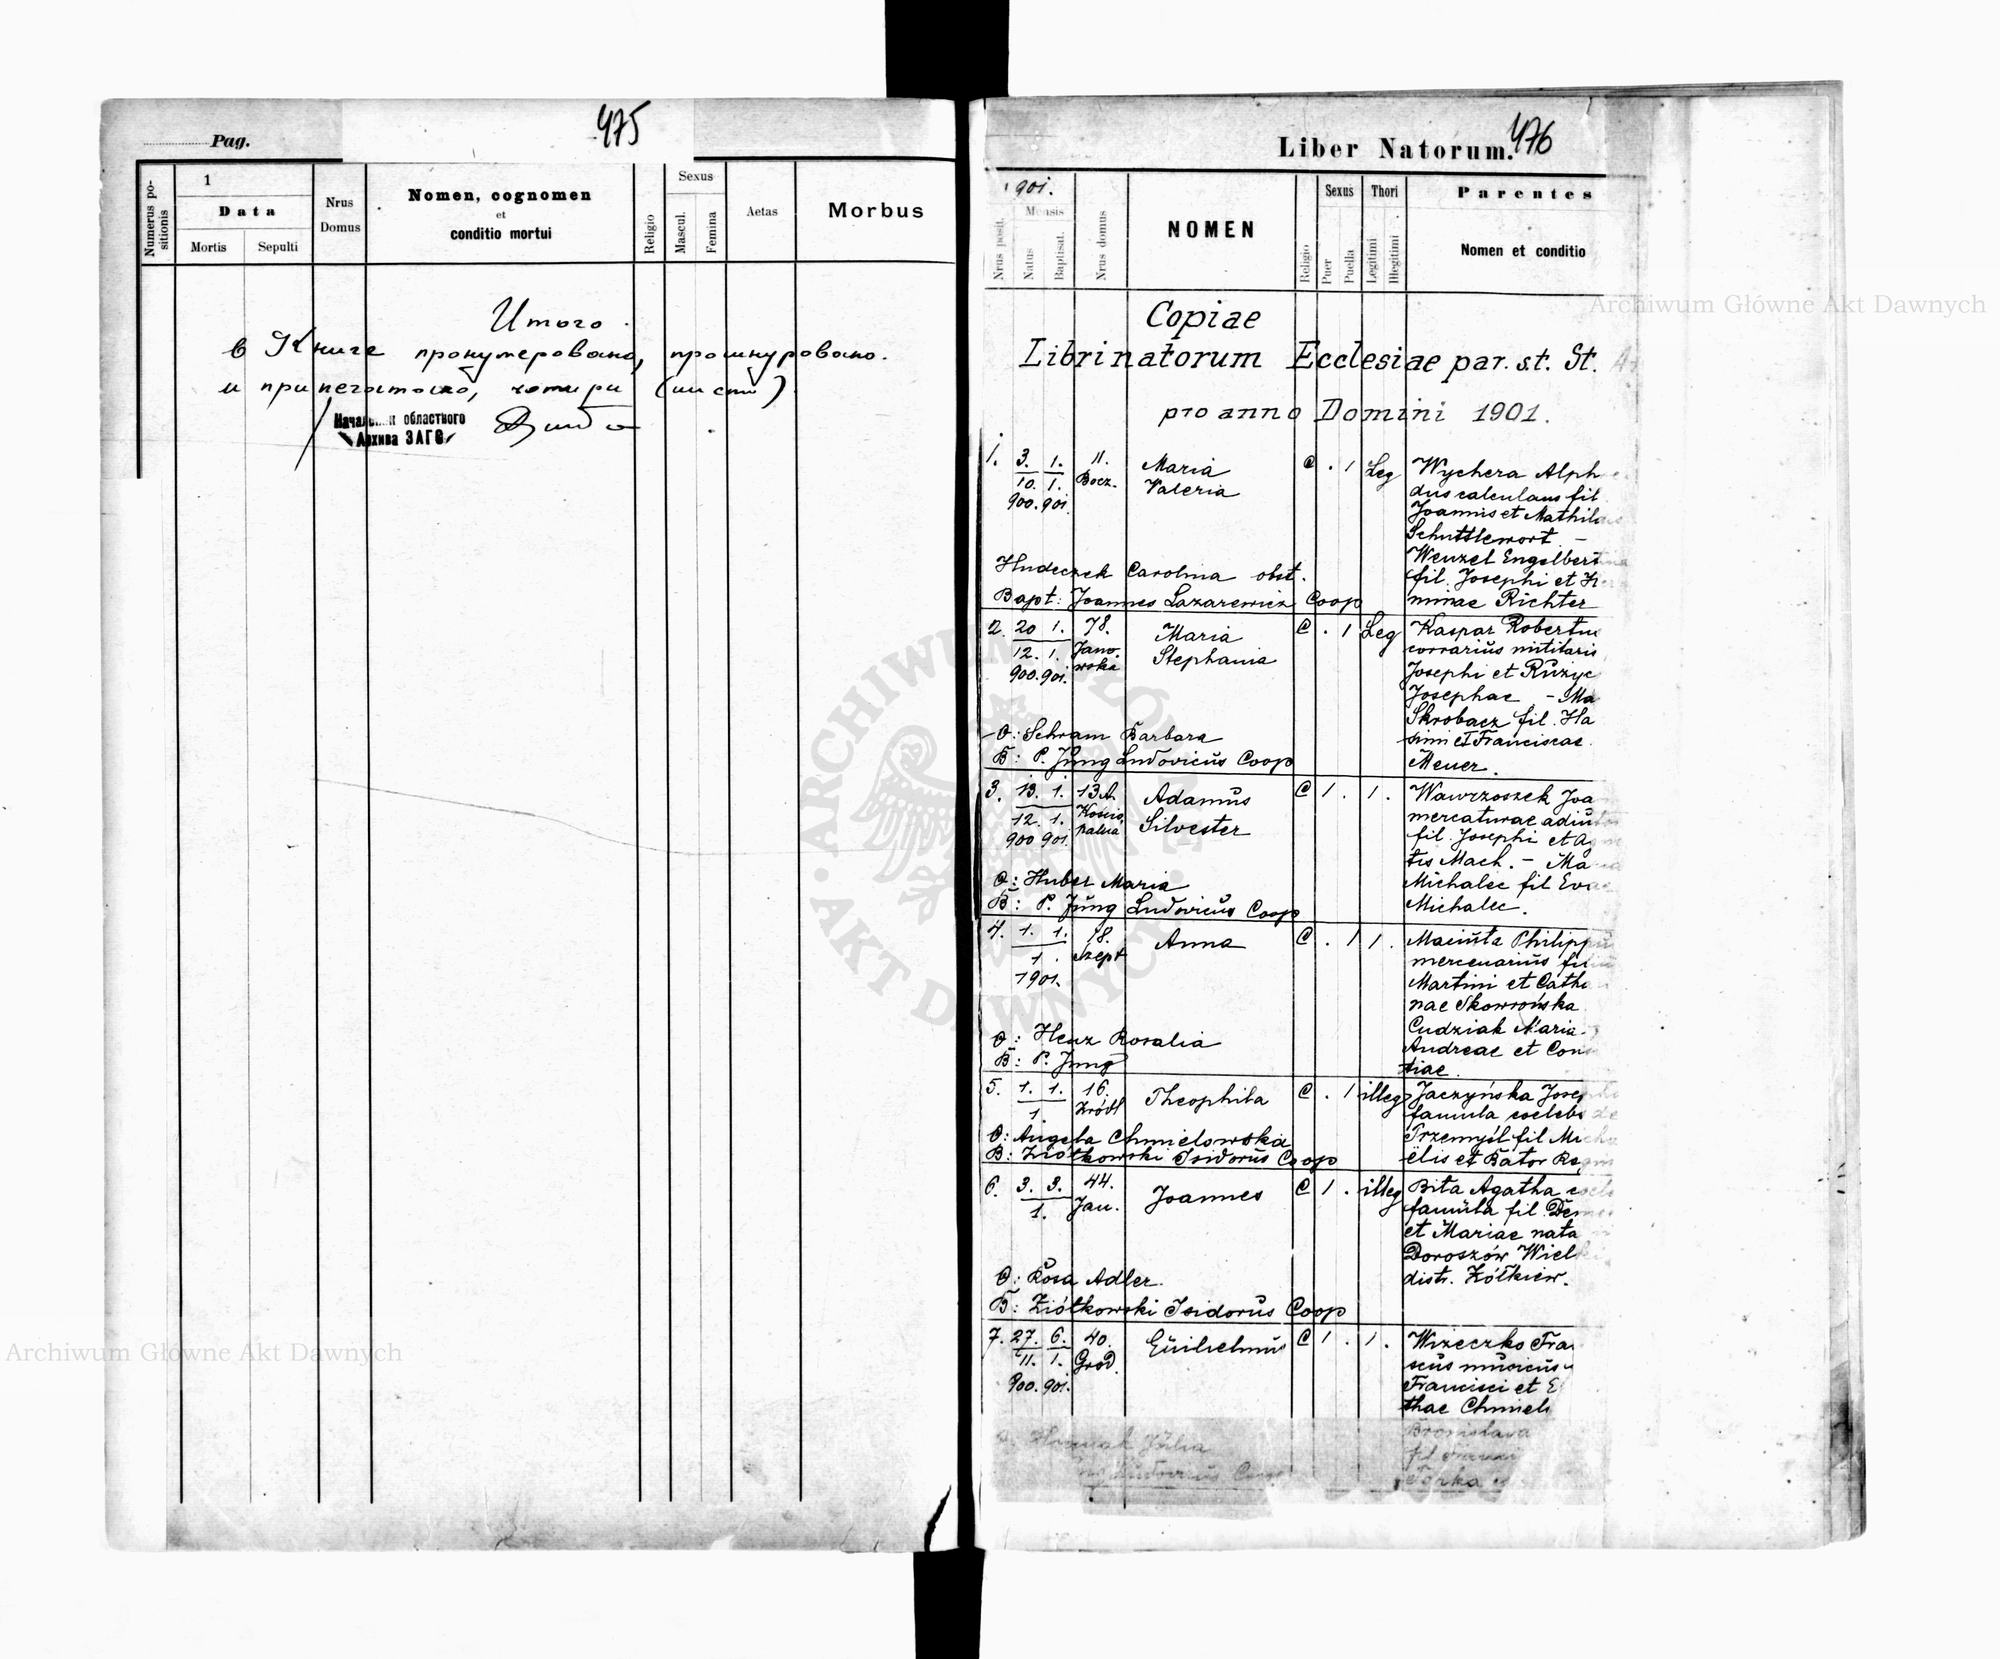 475
Pag.
Numerus positionis
1
Data
Mortis
Sepulti
Nrus
Domus
Nomen, cognomen
et
conditio mortui
Religio
Sexus
Mascul.
Femina
Aetas
Morbus
Итого
в Книге пронумеровано, прошнуровано
и припечатано, четыри (листи)
Начальник областного
Архива ЗАГС
Liber Natorum.
476
1901.
Nrus posit.
Mensis
Natus
Baptisat.
Nrus domus
NOMEN
Religio
Sexus
Puer
Puella
Thori
Legitimi
Illegitimi
Parentes
Nomen et conditio
Copiae
Libri natorum Ecclesiae par. s.t. St.
pro anno Domini 1901.
1. 3. 1. 11. Maria C . 1 Leg Wychera Alph
10. 1. Bocz. Valeria dus calculans fil.
900. 901. Joannis et Mathild
Schuttlewort –
Wenzel Engelbert
Hudeczek Carolina obst. fil. Josephi et
Bapt: Joannes Lazarewicz Coop minae Richter
2. 20 1. 78. Maria C . 1 Leg Kaspar Robertus
12. 1. Janowska Stephania militaris
900. 901. Josephi et Rużyc
Josephae – Ma
Skrobacz fil. Ha
O: Schram Barbara et Franciscae
B: P. Jung Ludovicus Coop Meuer.
3. 13. 1. 13A. Adamus C 1 . 1. Wawrzoszek Joa
12. 1. Silvester mercaturae adiut
900 901 fil. Josephi et Ag
tis Mach. – Ma
O: Huber Maria Michalec fil Eva
B: P. Jung Ludovicus Coop Michalec.
4. 1. 1. 78. Anna C . 1 1. Maciuła Philippu
1. Szept mercenarius fil
1901. Martini et Catha
nae Skowrońska
Cudziak Maria
O: Henz Rosalia Andreae et Con
B: P. Jung tiae.
5. 1. 1. 16. Theophila C . 1 illeg Jaczyńska Jose
1. Źródl famula coelebs de
O: Angela Chmielowska Przemyśl fil Mich
B: Ziółkowski Isidorus Coop elis et Bator Re
6. 3. 3. 44. Joannes C 1 . illeg Bita Agatha coele
1. Jan. famula fil. Deme
et Mariae nata
Doroszów Wielk
O: Rosa Adler. distr. Żółkiew.
B: Ziółkowski Isidorus Coop
7. 27. 6. 40. Guilielmus C 1 . 1. Wizeczko Fra
11. 1. Grod. scus musicus
900. 901. Francisci et E
thae Chmiel
Bronislava
Julia
Ludovicus Coop
Topka
Archiwum Główne Akt Dawnych
Archiwum Główne Akt Dawnych
ARCHIWUM GŁÓWNE AKT DAWNYCH